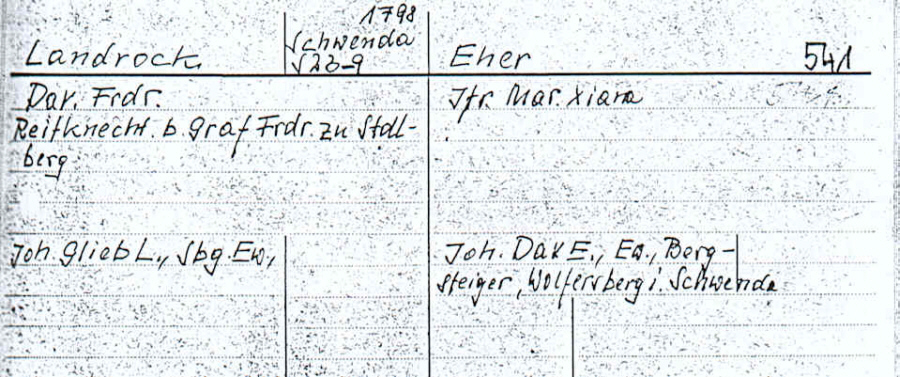 1798
Landrock
Schwenda
S 23-9
Eher
541
Dav. Frdr.
Reitknecht b. Graf Frdr. zu Stol-
berg
Jfr. Mar. Xiana
Joh. Glieb L., Sbg. Ew,
Joh. Dav E., Ew., Berg-
steiger, Wolfersberg i. Schwenda